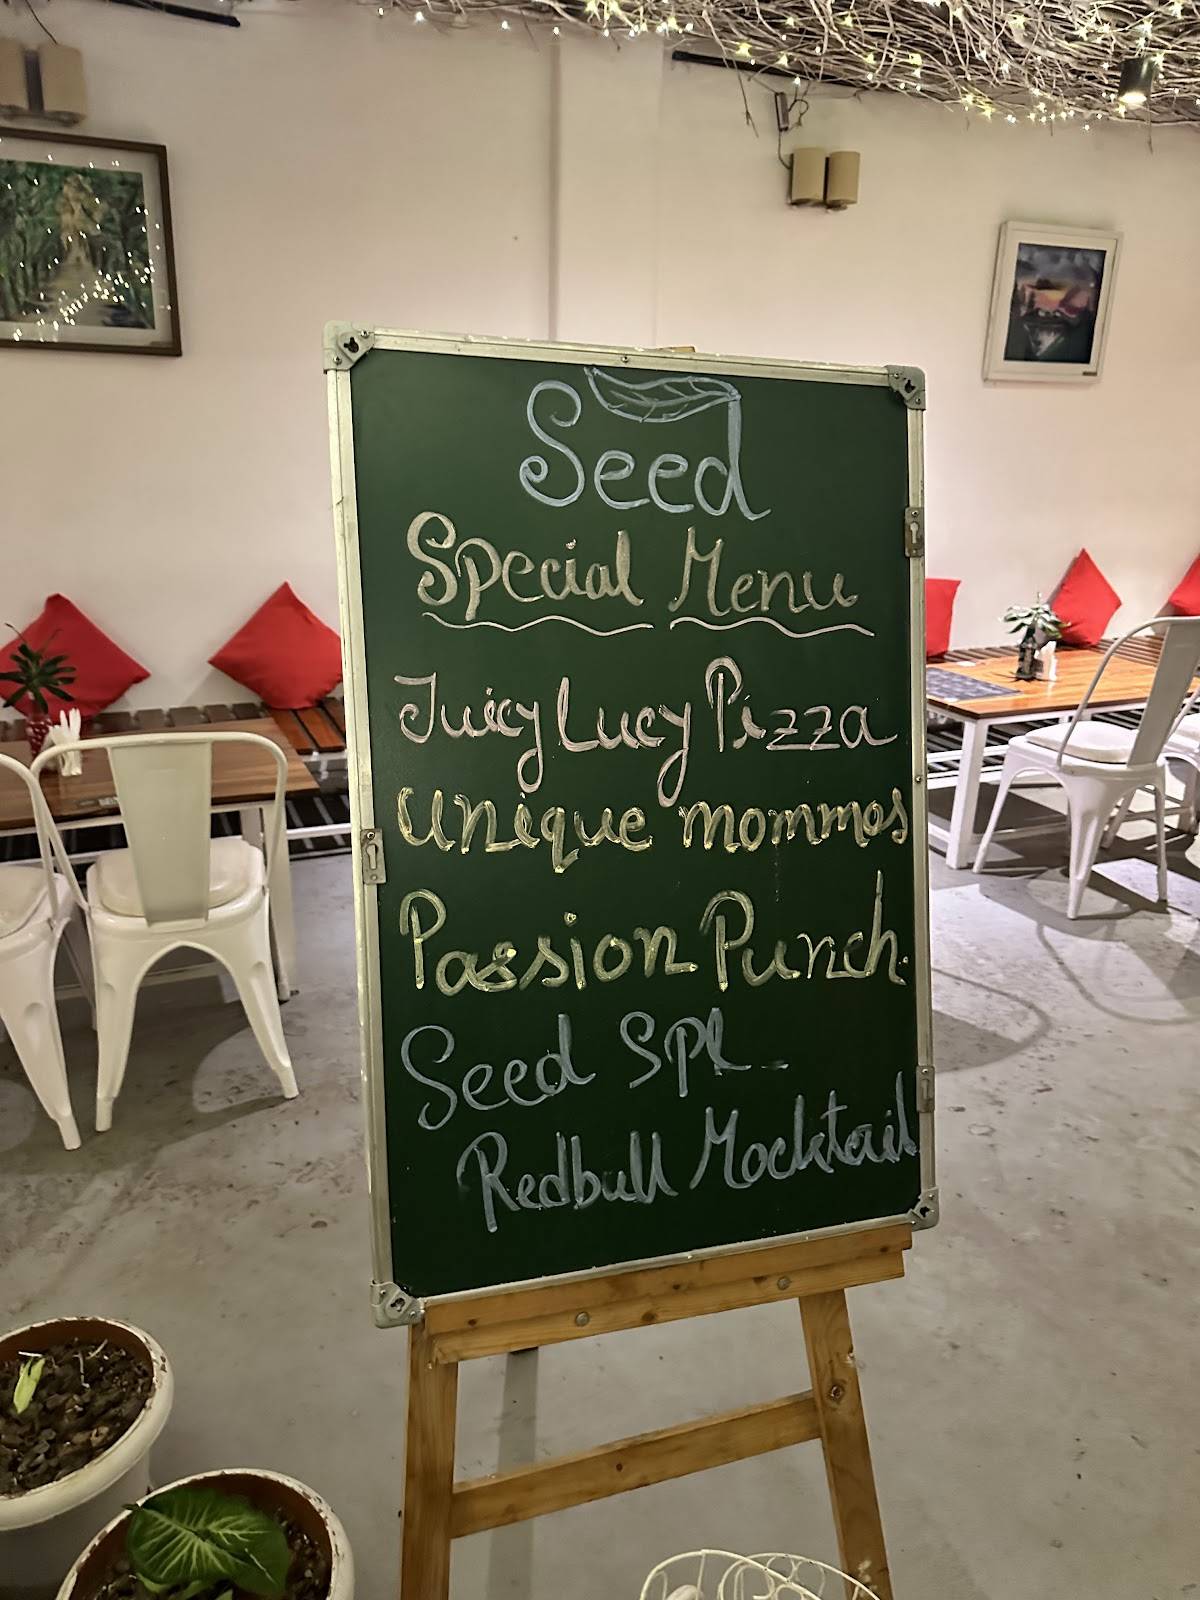 Seed
Special Menu
Juicy Lucy Pizza
Unique mommos
Passion Punch.
Seed Spl -
Redbull Mocktail